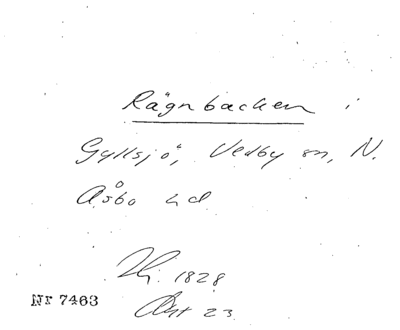 Rågnbacken i
Gyllsjö, Vedby sn, N.
Åsbo hd
1828
23
Nr 7463